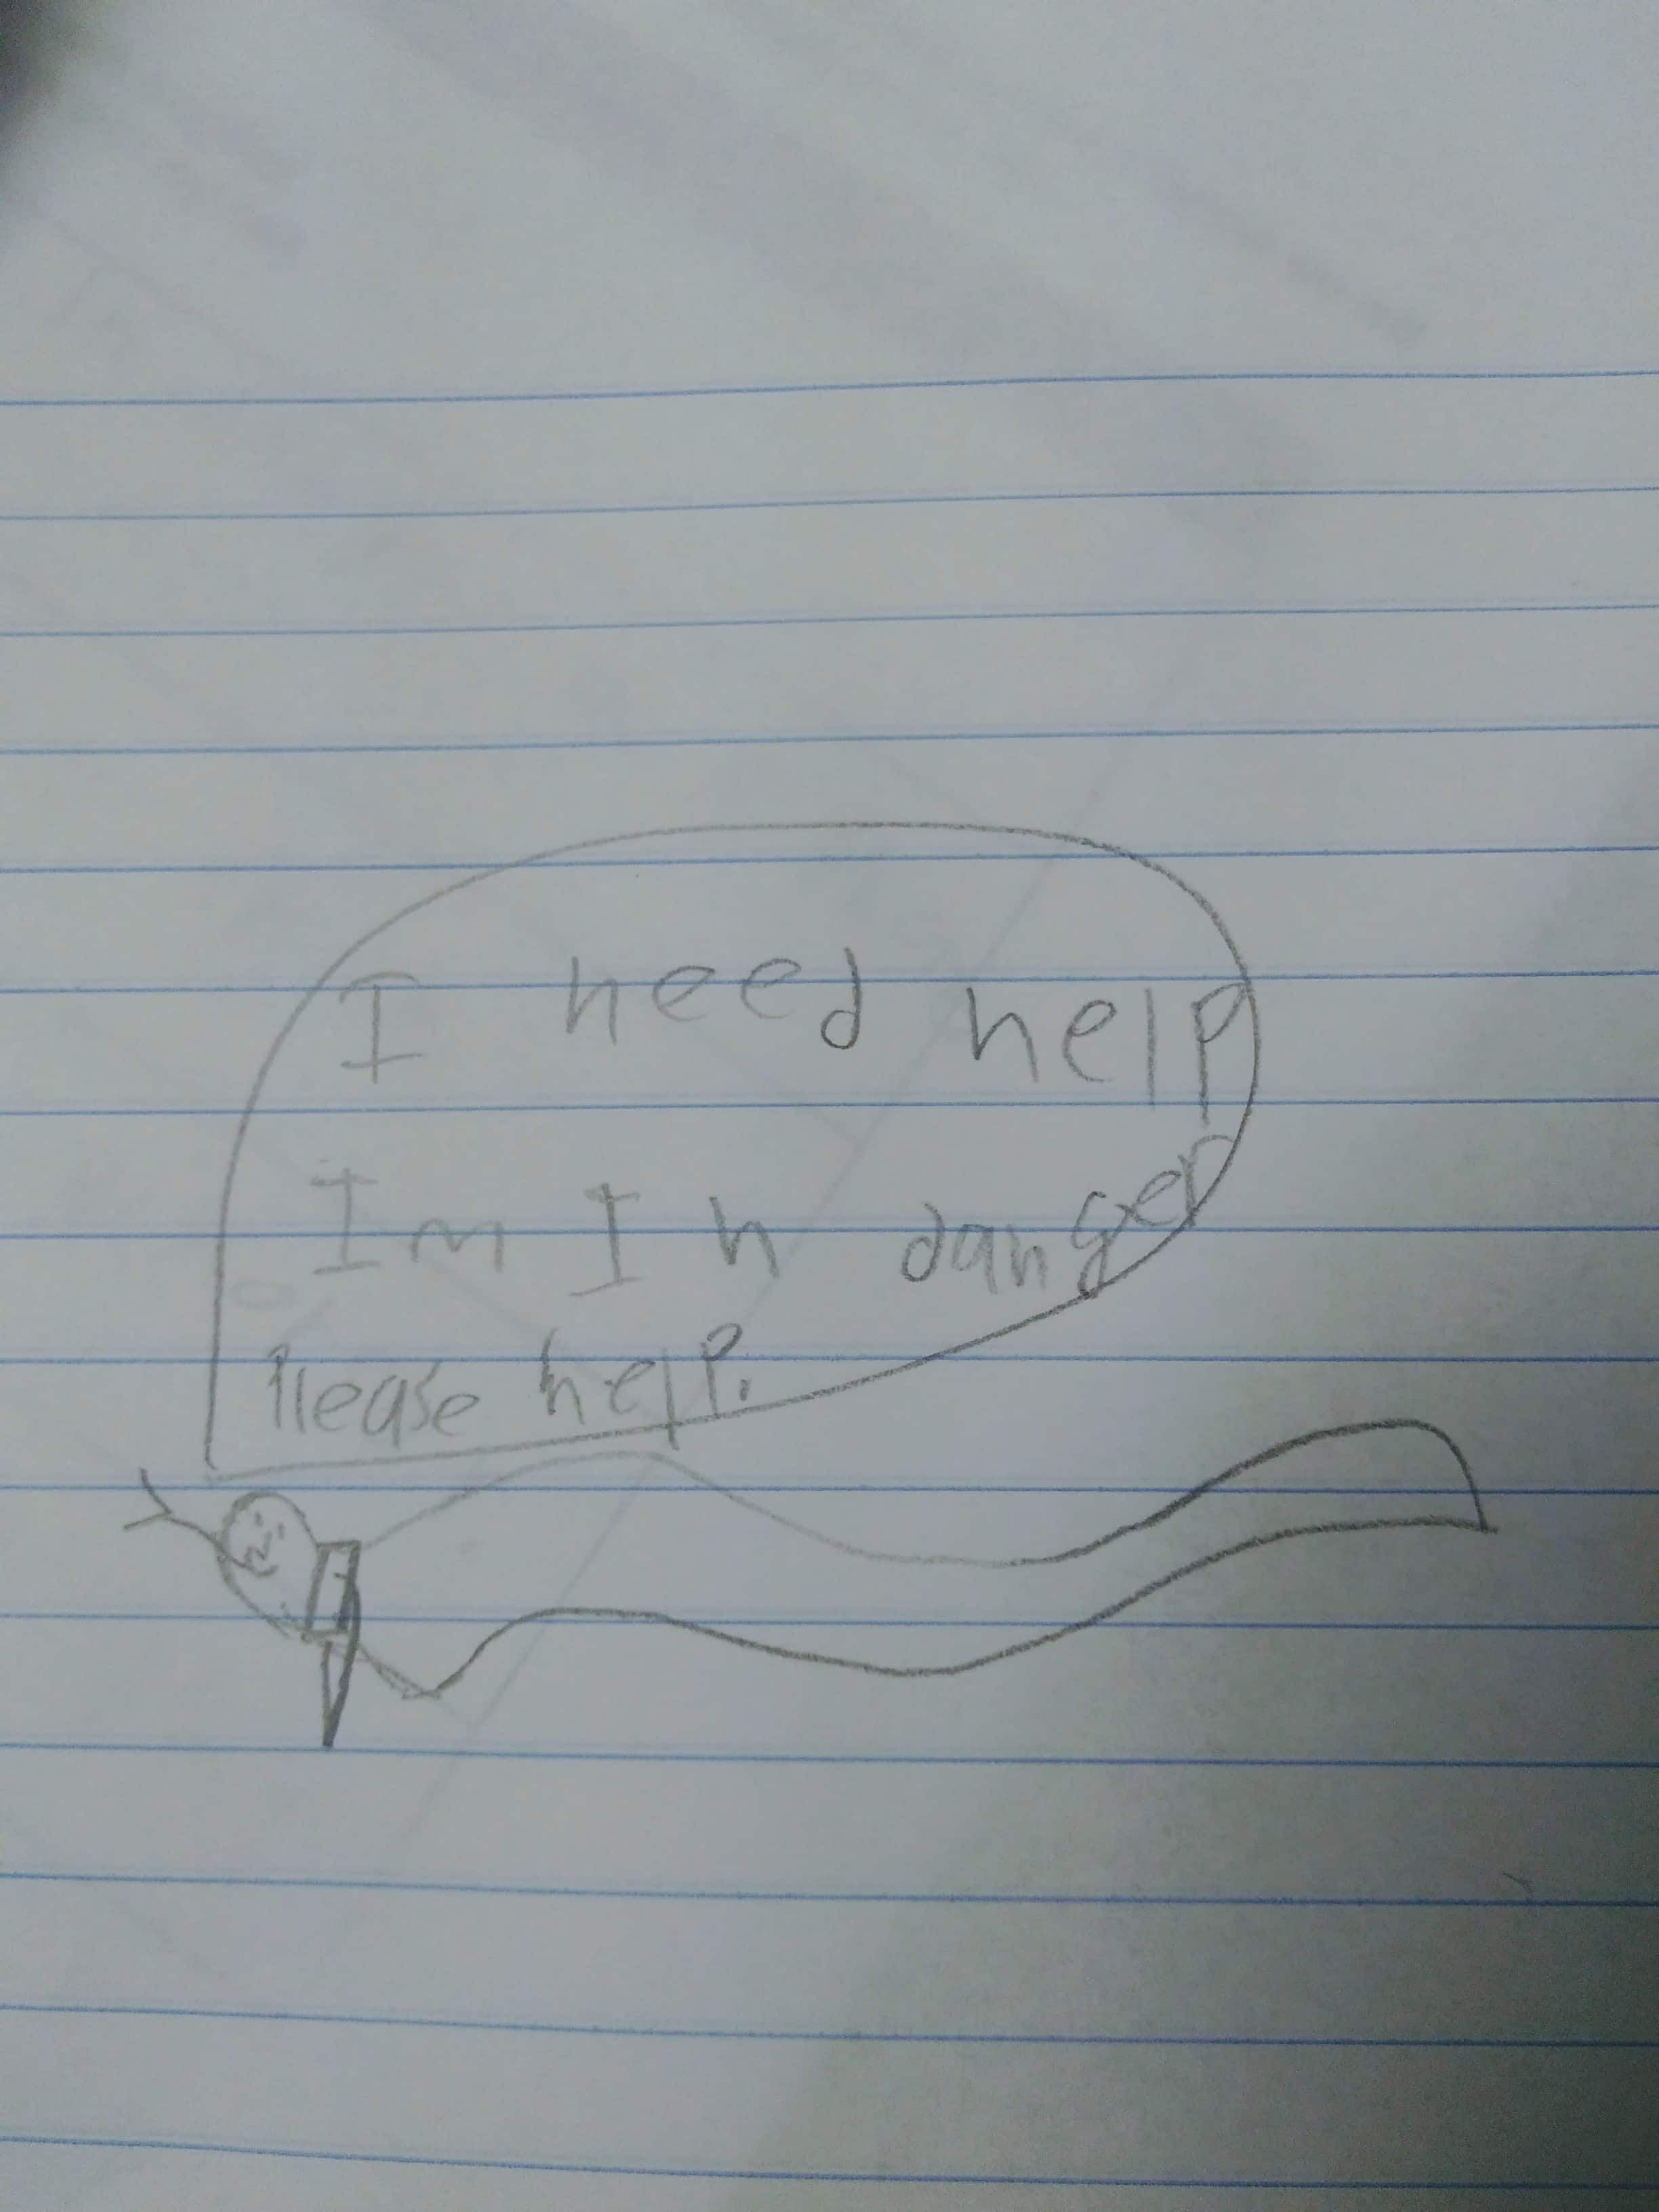 I need help
Im In danger
Please help.